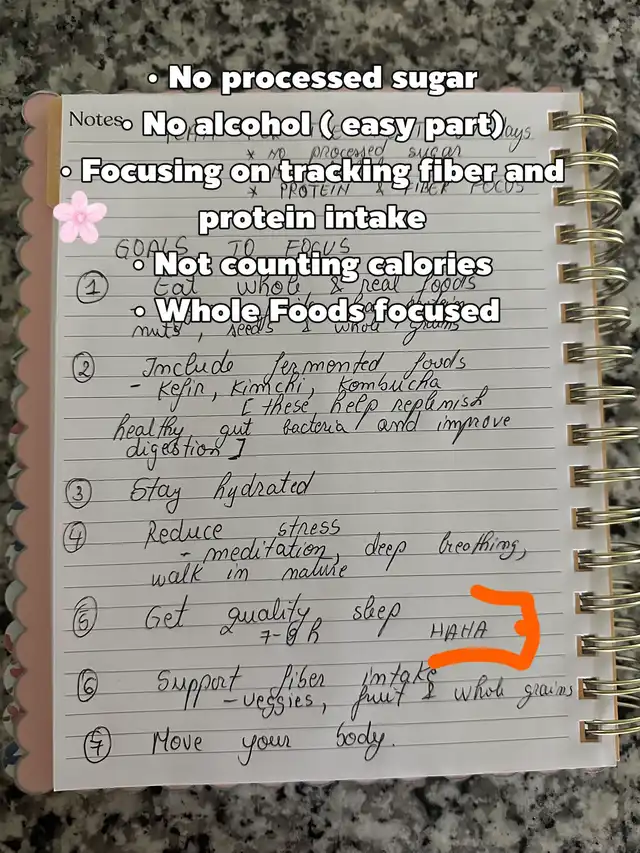 • No processed sugar
• No alcohol ( easy part)
• Focusing on tracking fiber and
protein intake
• Not counting calories
• Whole Foods focused
Notes
days
* NO processed sugar
* PROTEIN & FIBER FOCUS
GOALS TO FOCUS
① Eat whole & real foods
nuts, seeds & whole grains
② Include fermented foods
- Kefir, Kimchi, Kombucha
[ these help replenish
healthy gut bacteria and improve
digestion ]
③ Stay hydrated
④ Reduce stress
- meditation, deep breathing,
walk in nature
⑤ Get quality sleep
7-8 h HAHA
⑥ Support fiber intake
- veggies, fruit & whole grains
⑦ Move your body.